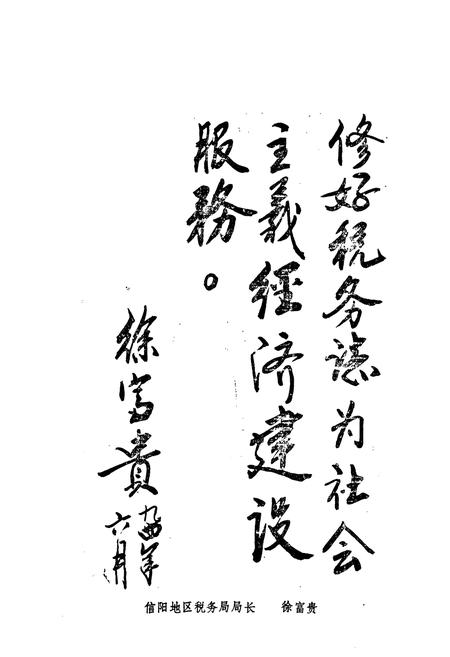 修好税务志为社会
主義经济建设
服務。
徐富貴
九四年
六月
信阳地区税务局局长 徐富贵